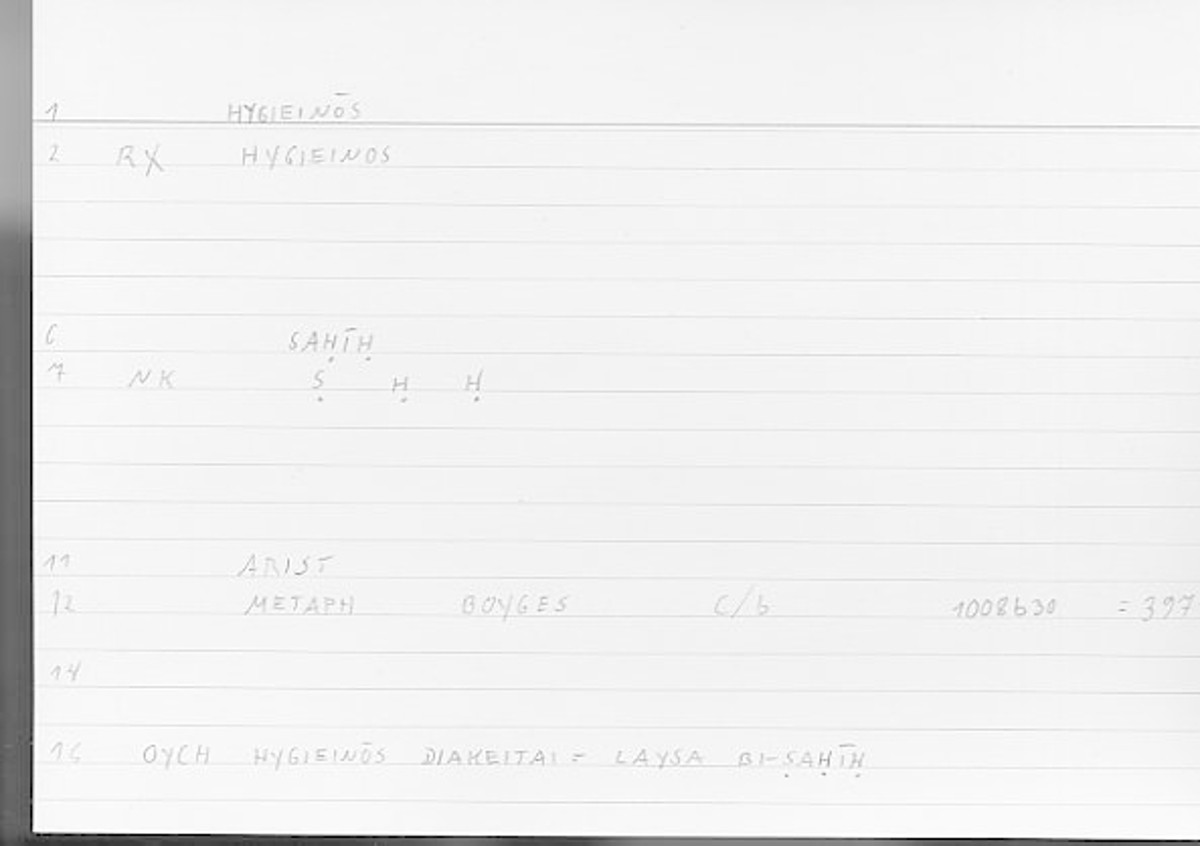 1 HYGIEINŌS
2 RX HYGIEINOS
6 SAḤĪḤ
7 NK Ṣ Ḥ Ḥ
11 ARIST
12 METAPH BOYGES C/b 1008b30 = 397
14
16 OYCH HYGIEINŌS DIAKEITAI = LAYSA BI-ṢAḤĪḤ